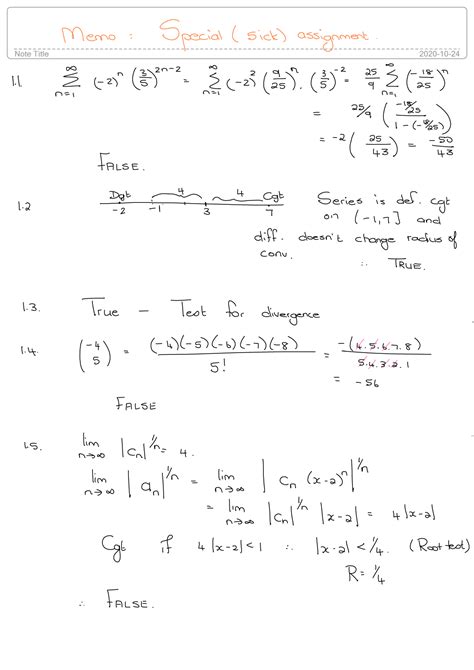 Memo : Special ( Sick) assignment.
Note Title 2020-10-24
1.1 ∞∑n=1 (-2)^n (3/5)^(2n-2) = ∞∑n=1 (-2)^2 (9/25)^n . (3/5)^-2 = 25/9 ∞∑n=1 (-18/25)^n
= 25/9 ( (-18/25) / (1-(-18/25)) )
= -2 ( 25/43 ) = -50/43
FALSE.
1.2 Dgt 4 4 Cgt
-2 -1 3 7
Series is def. cgt
on (-1,7] and
diff. doesn't change radius of
conv.
∴ TRUE.
1.3. True – Test for divergence
1.4. (-4 5) = (-4)(-5)(-6)(-7)(-8) / 5! = -(4.5.6.7.8) / 5.4.3.2.1
= -56
FALSE
1.5. lim n→∞ |cn|^1/n = 4.
lim n→∞ |an|^1/n = lim n→∞ |cn (x-2)^n|^1/n
= lim n→∞ |cn|^1/n |x-2| = 4|x-2|
Cgt if 4|x-2|<1 ∴ |x-2| < 1/4. (Root test)
R = 1/4
∴ FALSE.